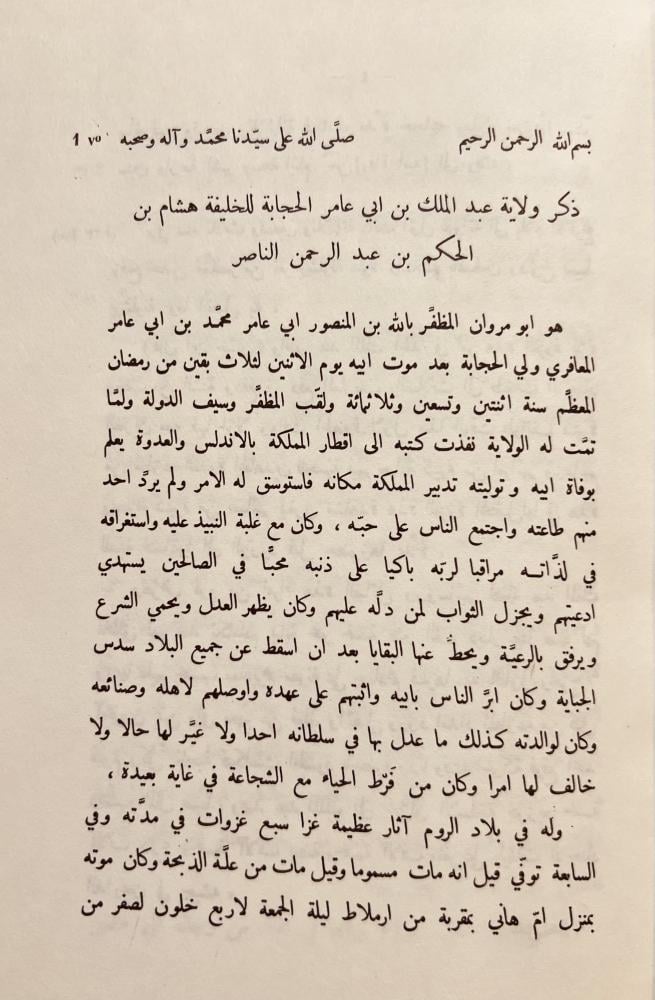 بسم الله الرحمن الرحيم صلَّى الله على سيّدنا محمَّد وآله وصحبه 1 v٥
ذكر ولاية عبد الملك بن ابي عامر الحجابة للخليفة هشام بن
الحكم بن عبد الرحمن الناصر
هو ابو مروان المظفَّر بالله بن المنصور ابي عامر محمَّد بن ابي عامر
المعافري ولي الحجابة بعد موت ابيه يوم الاثنين لثلاث بقين من رمضان
المعظَّم سنة اثنتين وتسعين وثلاثمائة ولقّب المظفَّر وسيف الدولة ولمَّا
تمَّت له الولاية نفذت كتبه الى اقطار المملكة بالاندلس والعدوة يعلم
بوفاة ابيه وتوليته تدبير المملكة مكانه فاستوسق له الامر ولم يردّ احد
منهم طاعته واجتمع الناس على حبّه ، وكان مع غلبة النبيذ عليه واستغراقه
في لذَّاتـه مراقبا لربّه باكيا على ذنبه محبًّا في الصالحين يستهدي
ادعيتهم ويجزل الثواب لمن دلَّه عليهم وكان يظهر العدل ويحمي الشرع
ويرفق بالرعيَّة ويحطّ عنها البقايا بعد ان اسقط عن جميع البلاد سدس
الجباية وكان ابرَّ الناس بابيه واثبتهم على عهده واوصلهم لاهله وصنائعه
وكان لوالدته كذلك ما عدل بها في سلطانه احدا ولا غيَّر لها حالا ولا
خالف لها امرا وكان من فَرْط الحياء مع الشجاعة في غاية بعيدة ،
وله في بلاد الروم آثار عظيمة غزا سبع غزوات في مدَّته وفي
السابعة توفّي قيل انه مات مسموما وقيل مات من علَّة الذبحة وكان موته
بمنزل امّ هاني بمقربة من ارملاط ليلة الجمعة لاربع خلون لصفر من